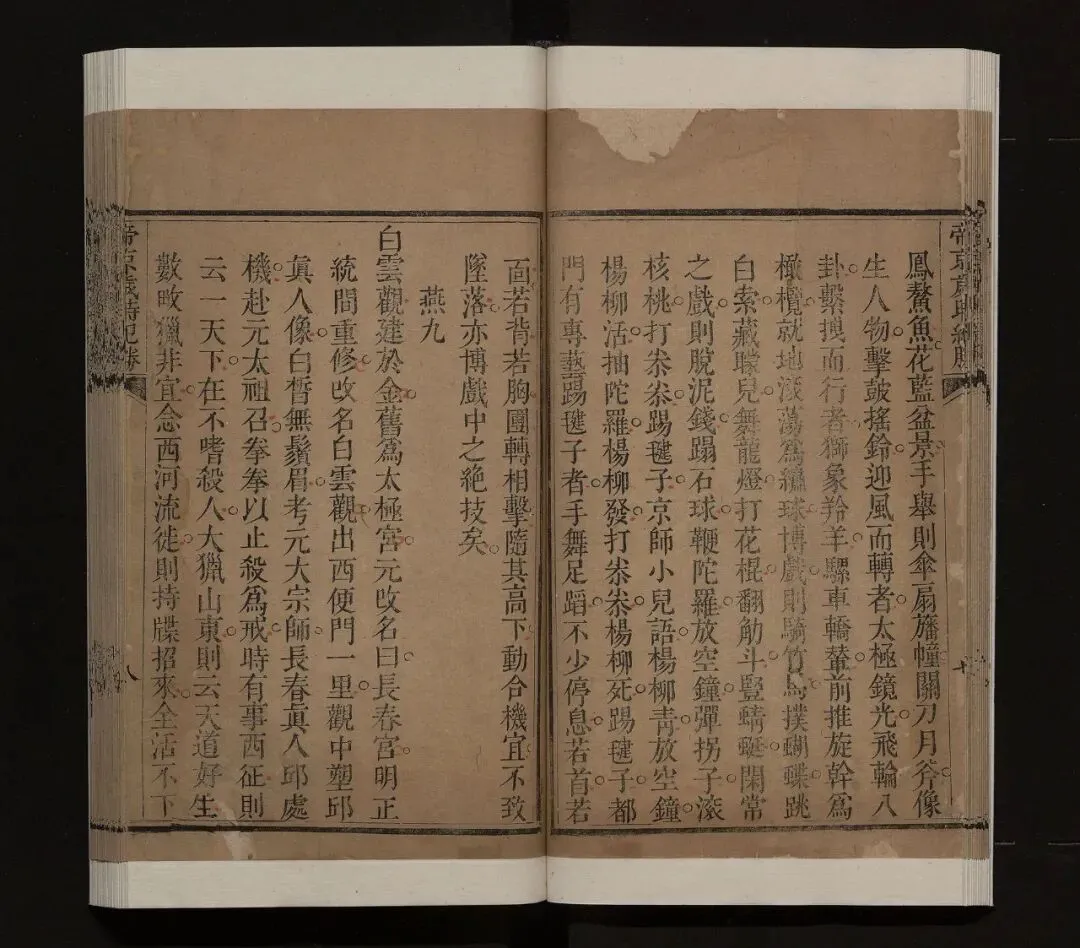 鳳鰲魚花藍盆景手舉則傘扇旛幢關刀月斧像
生人物擊鼓搖鈴迎風而轉者太極鏡光飛輪八
卦繫拽而行者獅象羚羊騾車轎輦前推旋斡爲
橄欖就地滾蕩爲繡球博戲則騎竹馬撲蝴蝶跳
白索藏矇兒舞龍燈打花棍翻觔斗豎蜻蜓閑常
之戲則脫泥錢蹋石球鞭陀羅放空鐘彈拐子滾
核桃打尜尜踢毽子京師小兒語楊柳靑放空鐘
楊柳活抽陀羅楊柳發打尜尜楊柳死踢毽子都
門有專藝踢毽子者手舞足蹈不少停息若首若
帝京歲時紀勝
面若背若胸團轉相擊隨其高下動合機宜不致
墜落亦博戲中之絶技矣
燕九
白雲觀建於金舊爲太極宮元改名曰長春宮明正
統間重修改名白雲觀出西便門一里觀中塑邱
眞人像白晳無鬚眉考元大宗師長春眞人邱處
機赴元太祖召拳拳以止殺爲戒時有事西征則
云一天下在不嗜殺人大獵山東則云天道好生
數畋獵非宜念西河流徙則持牒招來全活不下
帝京歲時紀勝
八